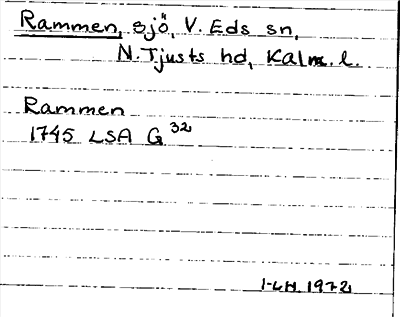 Rammen, sjö, V. Eds sn,
N. Tjusts hd, Kalm. l.
Rammen
1745 LSA G 32
I-LH 1972